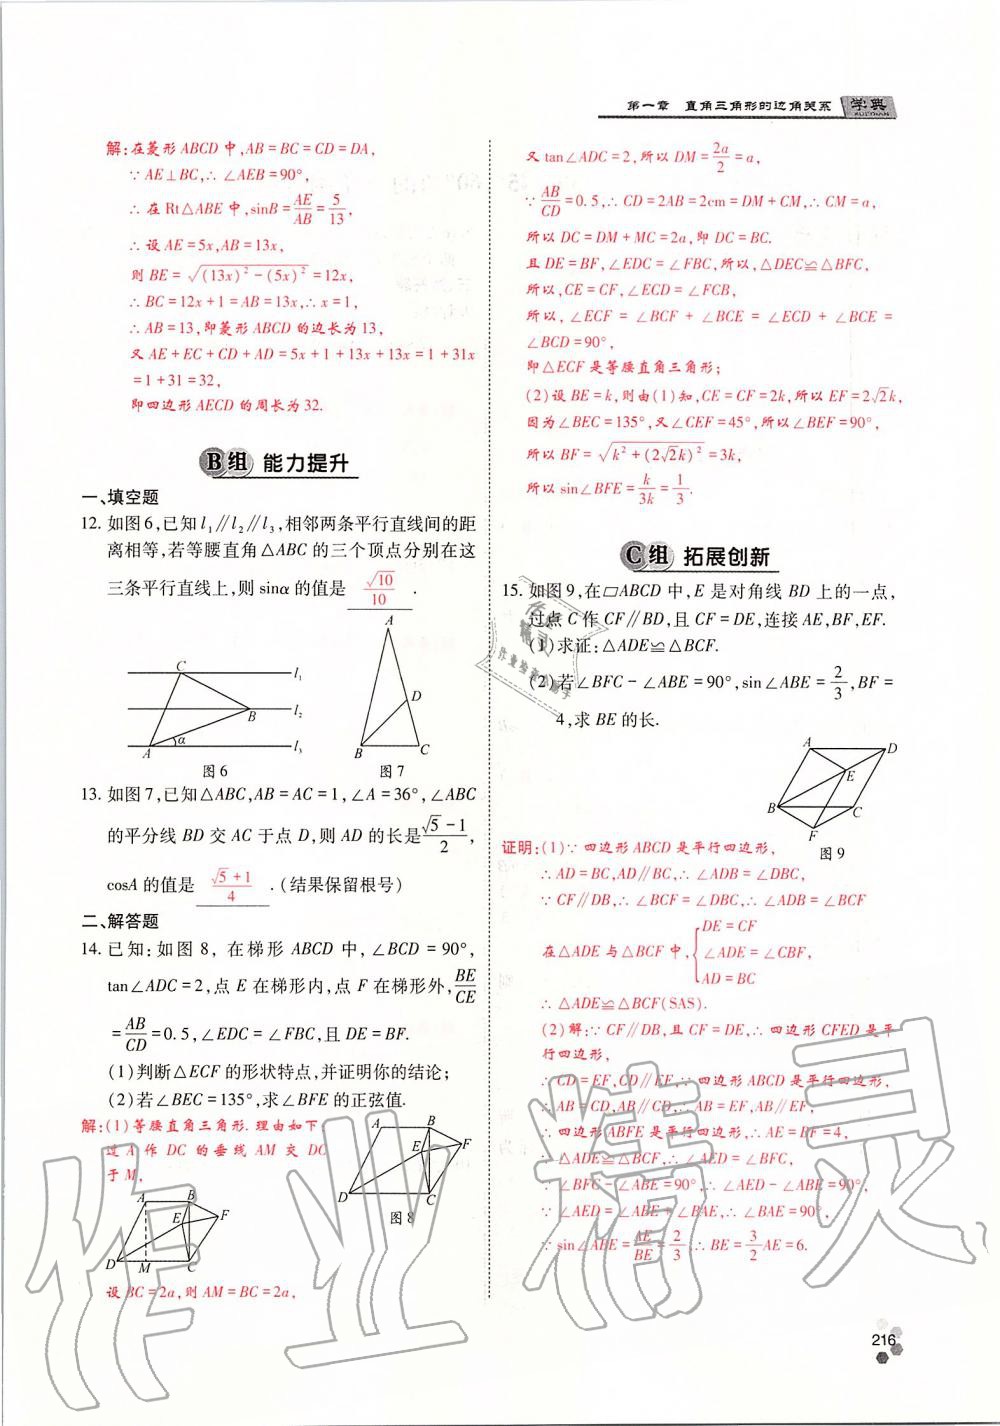 第一章 直角三角形的边角关系 学典
解:在菱形ABCD中,AB=BC=CD=DA,
∵AE⊥BC,∴∠AEB=90°,
∴在Rt△ABE中,sinB=AE/AB=5/13,
∴设AE=5x,AB=13x,
则BE=√((13x)²-(5x)²)=12x,
∴BC=12x+1=AB=13x,∴x=1,
∴AB=13,即菱形ABCD的边长为13,
又AE+EC+CD+AD=5x+1+13x+13x=1+31x
=1+31=32,
即四边形AECD的周长为32.
B组 能力提升
一、填空题
12. 如图6,已知l₁∥l₂∥l₃,相邻两条平行直线间的距
离相等,若等腰直角△ABC的三个顶点分别在这
三条平行直线上,则sinα的值是 √10/10 .
C l₁
B l₂
A α l₃
图6
A
D
B C
图7
13. 如图7,已知△ABC,AB=AC=1,∠A=36°,∠ABC
的平分线BD交AC于点D,则AD的长是 (√5-1)/2 ,
cosA的值是 (√5+1)/4 .(结果保留根号)
二、解答题
14. 已知:如图8,在梯形ABCD中,∠BCD=90°,
tan∠ADC=2,点E在梯形内,点F在梯形外,BE/CE
=AB/CD=0.5,∠EDC=∠FBC,且DE=BF.
(1)判断△ECF的形状特点,并证明你的结论;
(2)若∠BEC=135°,求∠BFE的正弦值.
解:(1)等腰直角三角形.理由如下
过A作DC的垂线AM交DC
于M,
A B
E F
D C
图8
A B
E F
D M C
设BC=2a,则AM=BC=2a,
又tan∠ADC=2,所以DM=2a/2=a,
∵AB/CD=0.5,∴CD=2AB=2cm=DM+CM,∴CM=a,
所以DC=DM+MC=2a,即DC=BC.
且DE=BF,∠EDC=∠FBC,所以,△DEC≌△BFC,
所以,CE=CF,∠ECD=∠FCB,
所以,∠ECF=∠BCF+∠BCE=∠ECD+∠BCE=
∠BCD=90°,
即△ECF是等腰直角三角形;
(2)设BE=k,则由(1)知,CE=CF=2k,所以EF=2√2k,
因为∠BEC=135°,又∠CEF=45°,所以∠BEF=90°,
所以BF=√(k²+(2√2k)²)=3k,
所以sin∠BFE=k/3k=1/3.
C组 拓展创新
15. 如图9,在▱ABCD中,E是对角线BD上的一点,
过点C作CF∥BD,且CF=DE,连接AE,BF,EF.
(1)求证:△ADE≌△BCF.
(2)若∠BFC-∠ABE=90°,sin∠ABE=2/3,BF=
4,求BE的长.
A D
E
B C
F
图9
证明:(1)∵四边形ABCD是平行四边形,
∴AD=BC,AD∥BC,∴∠ADB=∠DBC,
∵CF∥DB,∴∠BCF=∠DBC,∴∠ADB=∠BCF
DE=CF
在△ADE与△BCF中,{∠ADE=∠CBF,
AD=BC
∴△ADE≌△BCF(SAS).
(2)解:∵CF∥DB,且CF=DE,∴四边形CFED是平
行四边形,
∴CD=EF,CD∥EF,∵四边形ABCD是平行四边形,
∴AB=CD,AB∥CD,∴AB=EF,AB∥EF,
∴四边形ABFE是平行四边形,∴AE=BF=4,
∵△ADE≌△BCF,∴∠AED=∠BFC,
∵∠BFC-∠ABE=90°,∴∠AED-∠ABE=90°,
∵∠AED=∠ABE+∠BAE,∴∠BAE=90°,
∵sin∠ABE=AE/BE=2/3,∴BE=3/2AE=6.
216
作业精灵